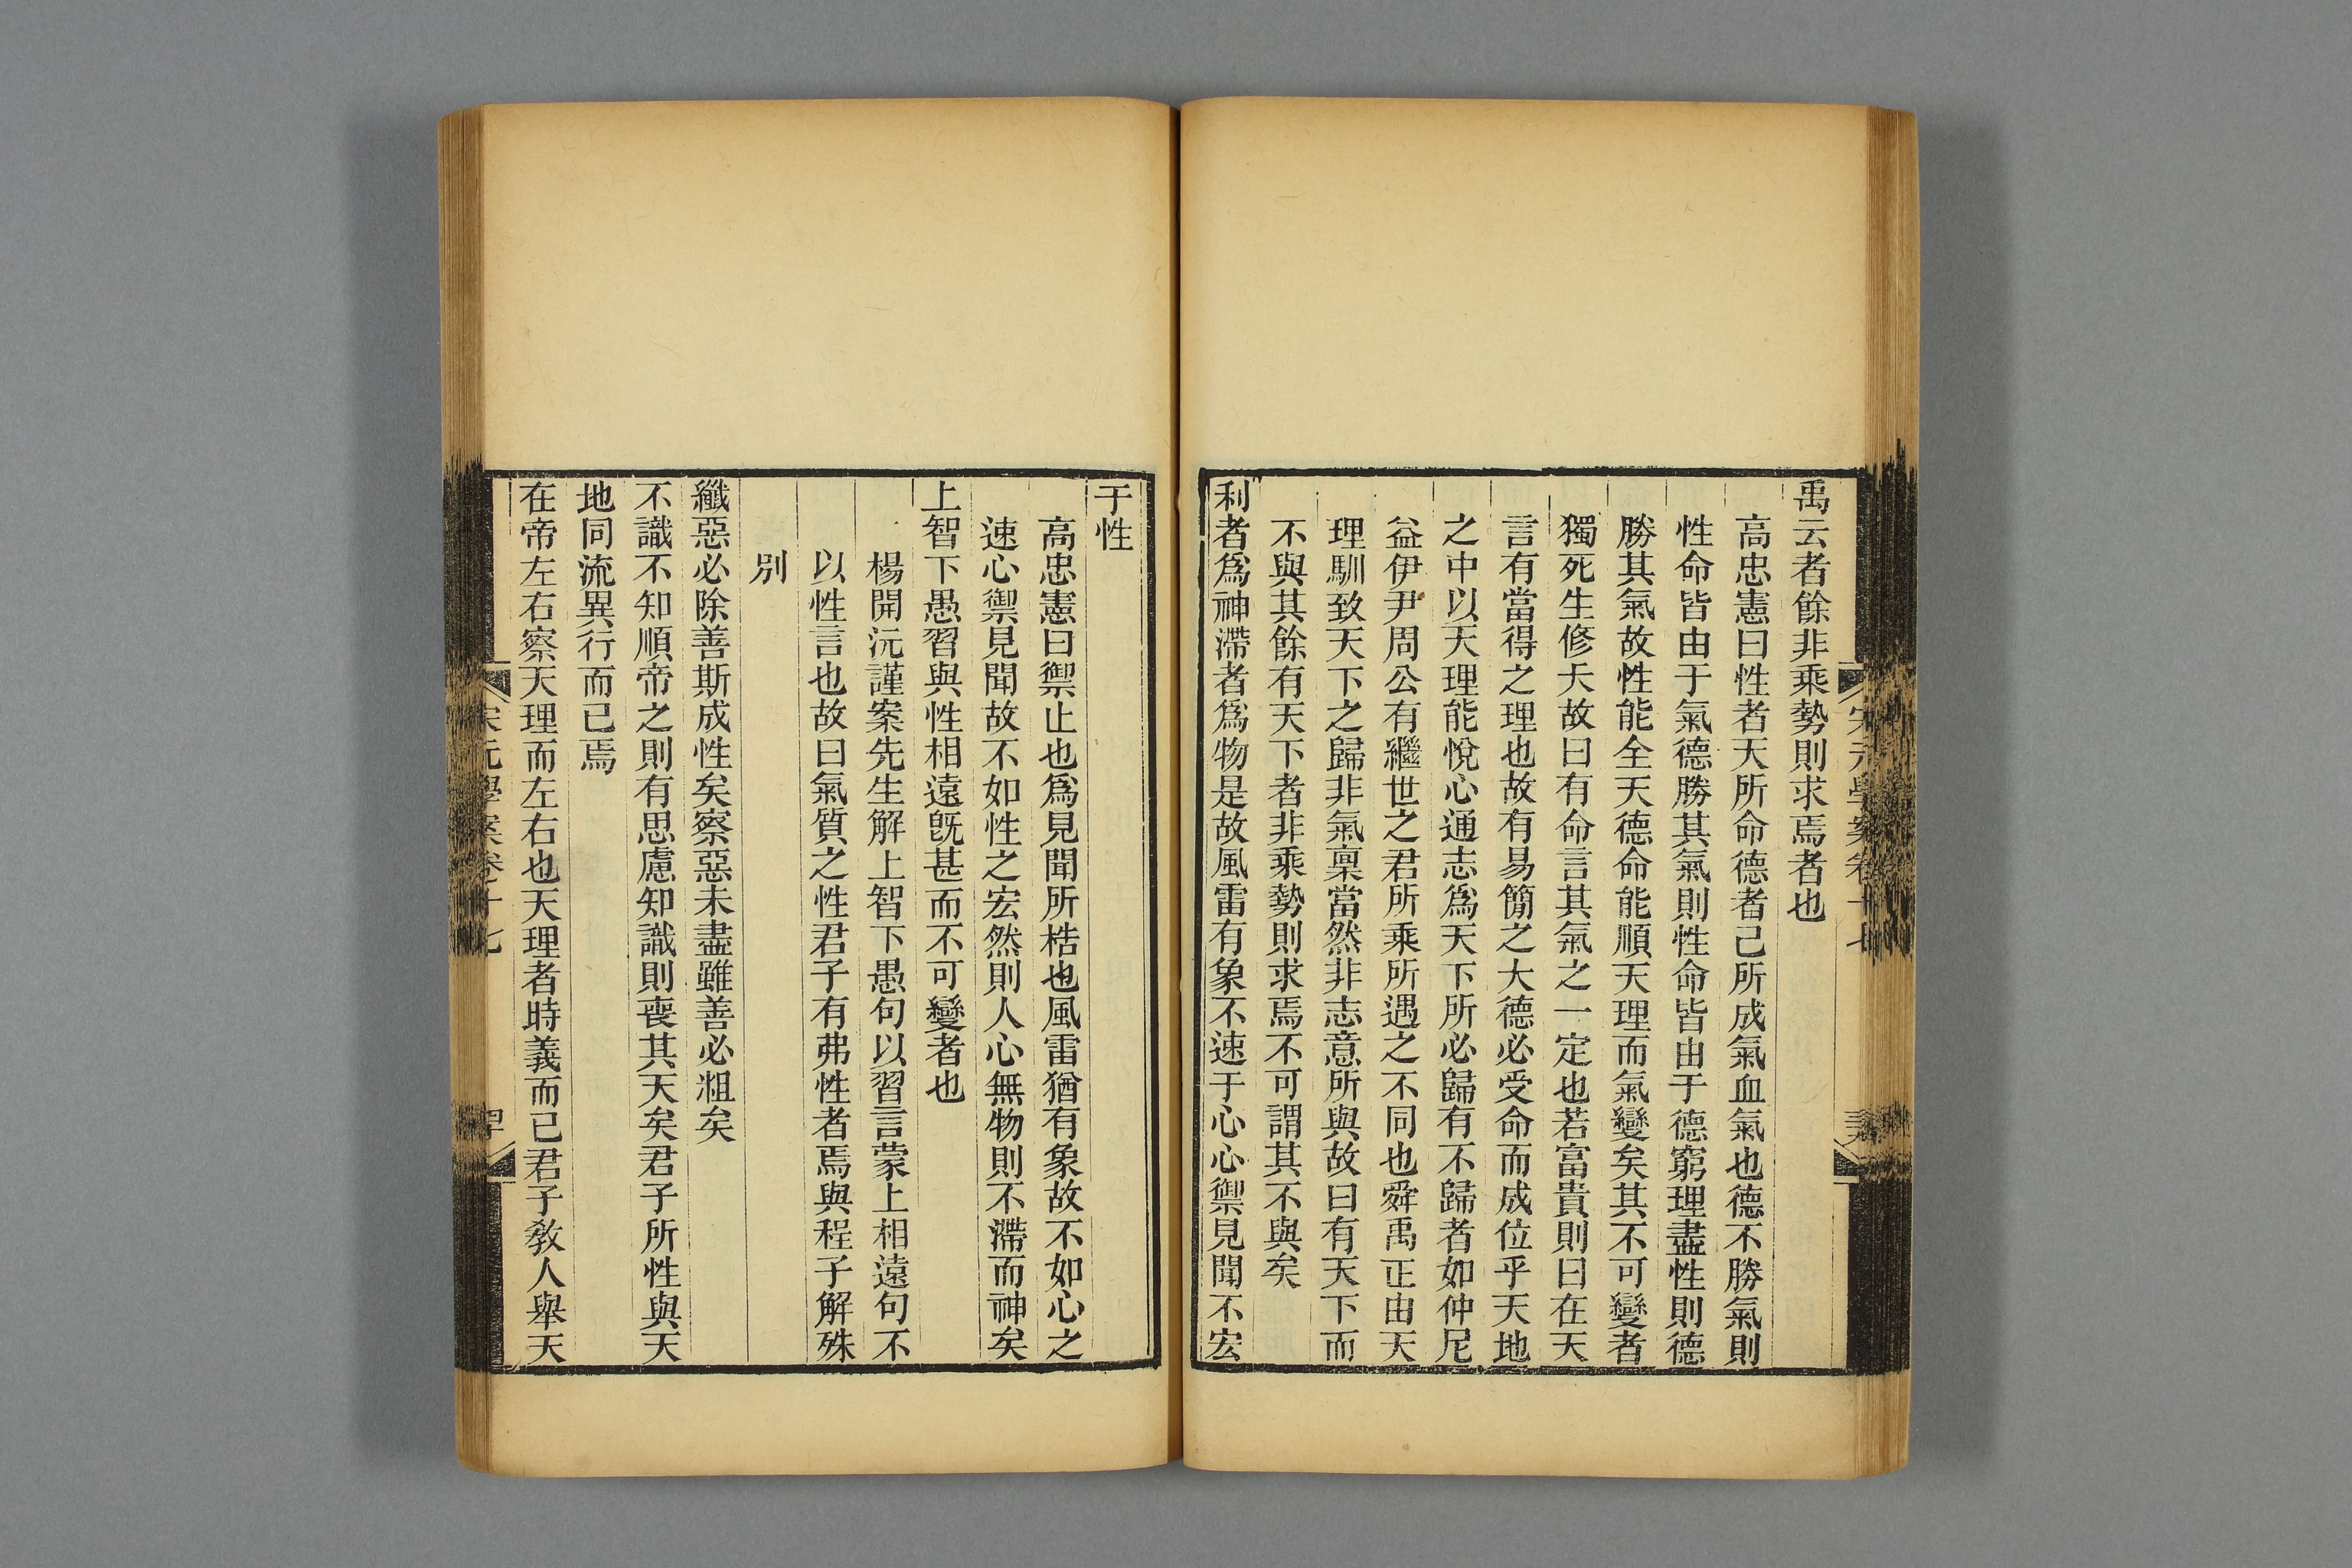 禹云者餘非乘勢則求焉者也
高忠憲曰性者天所命德者己所成氣血氣也德不勝氣則
性命皆由于氣德勝其氣則性命皆由于德窮理盡性則德
勝其氣故性能全天德命能順天理而氣變矣其不可變者
獨死生修夭故曰有命言其氣之一定也若富貴則曰在天
言有當得之理也故有易簡之大德必受命而成位乎天地
之中以天理能悅心通志爲天下所必歸有不歸者如仲尼
益伊尹周公有繼世之君所乘所遇之不同也舜禹正由天
理馴致天下之歸非氣稟當然非志意所與故曰有天下而
不與其餘有天下者非乘勢則求焉不可謂其不與矣
利者爲神滯者爲物是故風雷有象不速于心心禦見聞不宏
于性
高忠憲曰禦止也爲見聞所梏也風雷猶有象故不如心之
速心禦見聞故不如性之宏然則人心無物則不滯而神矣
上智下愚習與性相遠旣甚而不可變者也
楊開沅謹案先生解上智下愚句以習言蒙上相遠句不
以性言也故曰氣質之性君子有弗性者焉與程子解殊
別
纖惡必除善斯成性矣察惡未盡雖善必粗矣
不識不知順帝之則有思慮知識則喪其天矣君子所性與天
地同流異行而已焉
在帝左右察天理而左右也天理者時義而已君子敎人舉天
宋元學案卷十七